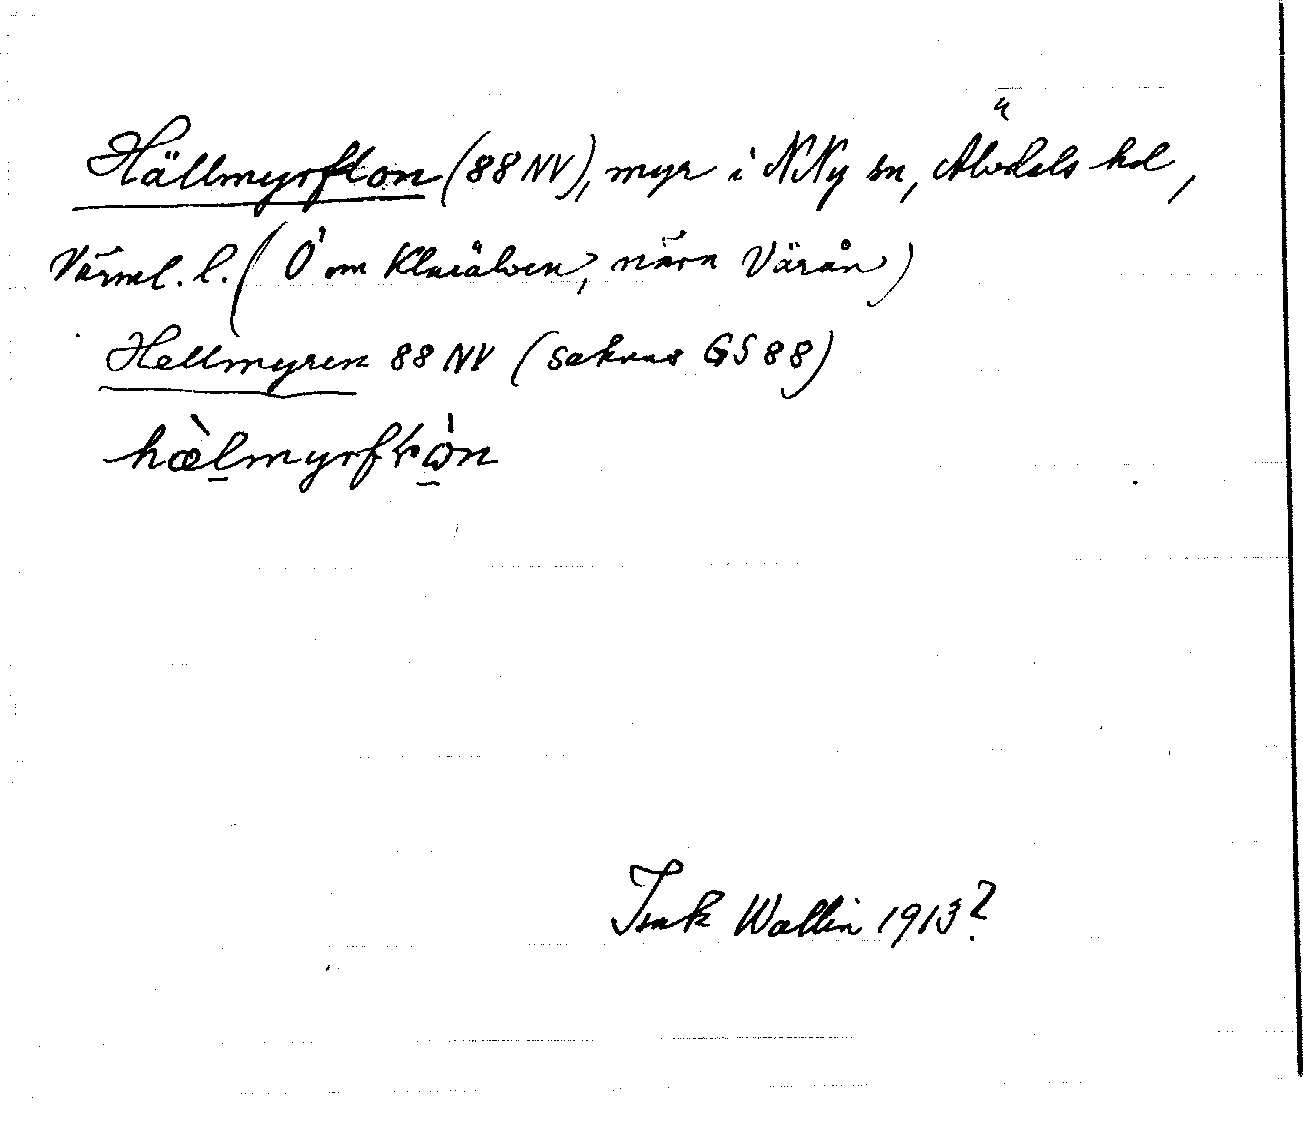 Hällmyrflon (88 NV), myr i N Ny sn, Älvdals hd,
Värml. l. (Ö om Klarälven, nära Värån)
Hellmyren 88 NV (saknas GS 88)
hæ̀lmyrfɽòn
Isak Wallin 1913?